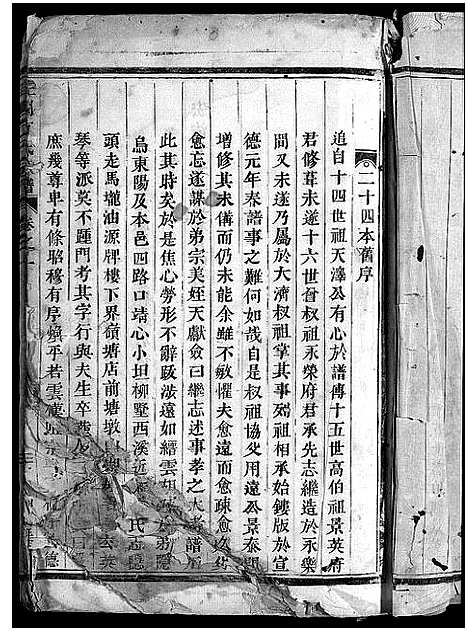 二十四本舊序
追自十四世祖天澤公有心於譜傳十五世高伯祖景英府
君修葺未遂十六世曾叔祖永榮府君承先志繼造於永樂
間又未遂乃屬於大濟叔祖掌其事弼祖相承始鏤版於宣
德元年春譜事之難何如哉自是叔祖協父用遠公景泰間
增修其未備而仍未能余雖不敏懼夫愈遠而愈疎愈久
愈忘遂謀於弟宗美姪天獻僉曰繼志述事孝之大者譜
此其時矣於是焦心勞形不辭跋涉遠如縉雲
烏東陽及本邑四路口靖心小坦柳墅西溪近 氏
頭走馬壠油源牌樓下界嶺塘店前塘墩 玄英
琴等派莫不踵門考其字行與夫生卒
庶幾尊卑有條昭穆有序煥乎若雲 德
卷之一